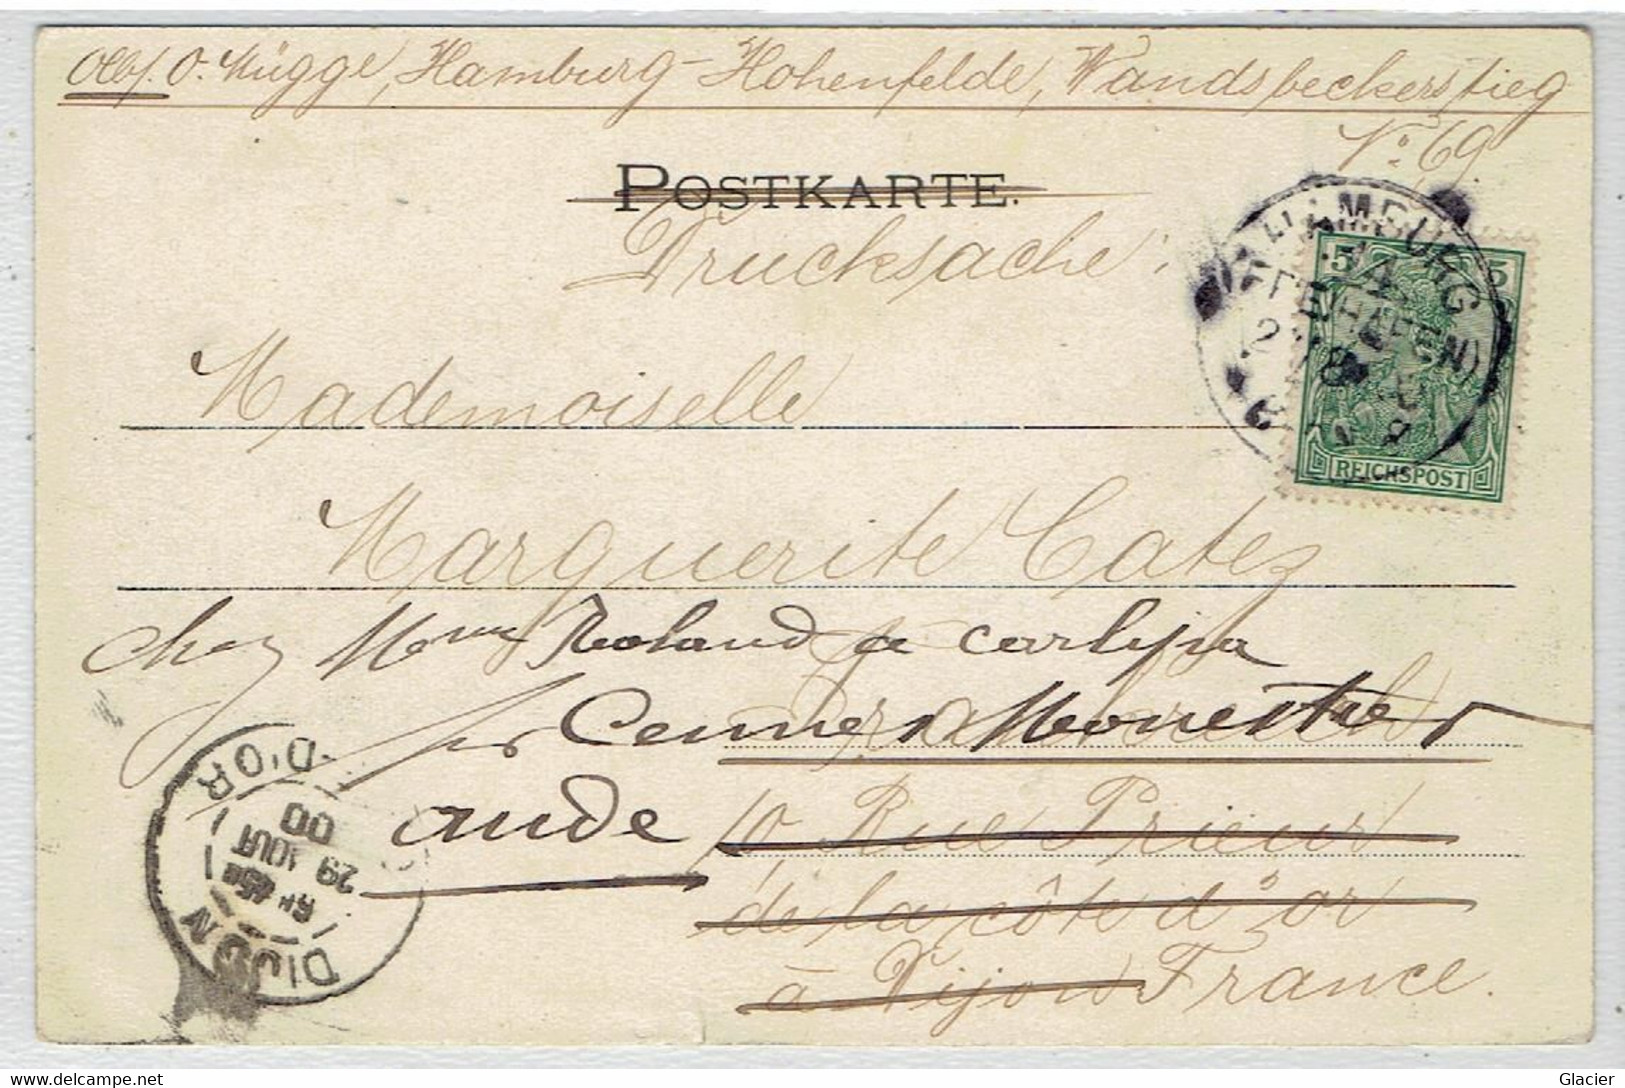 Abs. O. Mügge, Hamburg-Hohenfelde, Wandsbeckerstieg
No 69.
POSTKARTE.
Drucksache:
HAMBURG
(FREIHAFEN)
5 5
REICHSPOST
Mademoiselle
Marguerite Catez
chez Mme Roland de Carlipa
Cennes Monestier
aude
10 Rue Prieur
de la côte d'or
à Dijon France.
DIJON
29 AOUT
00
D'OR
delcampe.net
Glacier